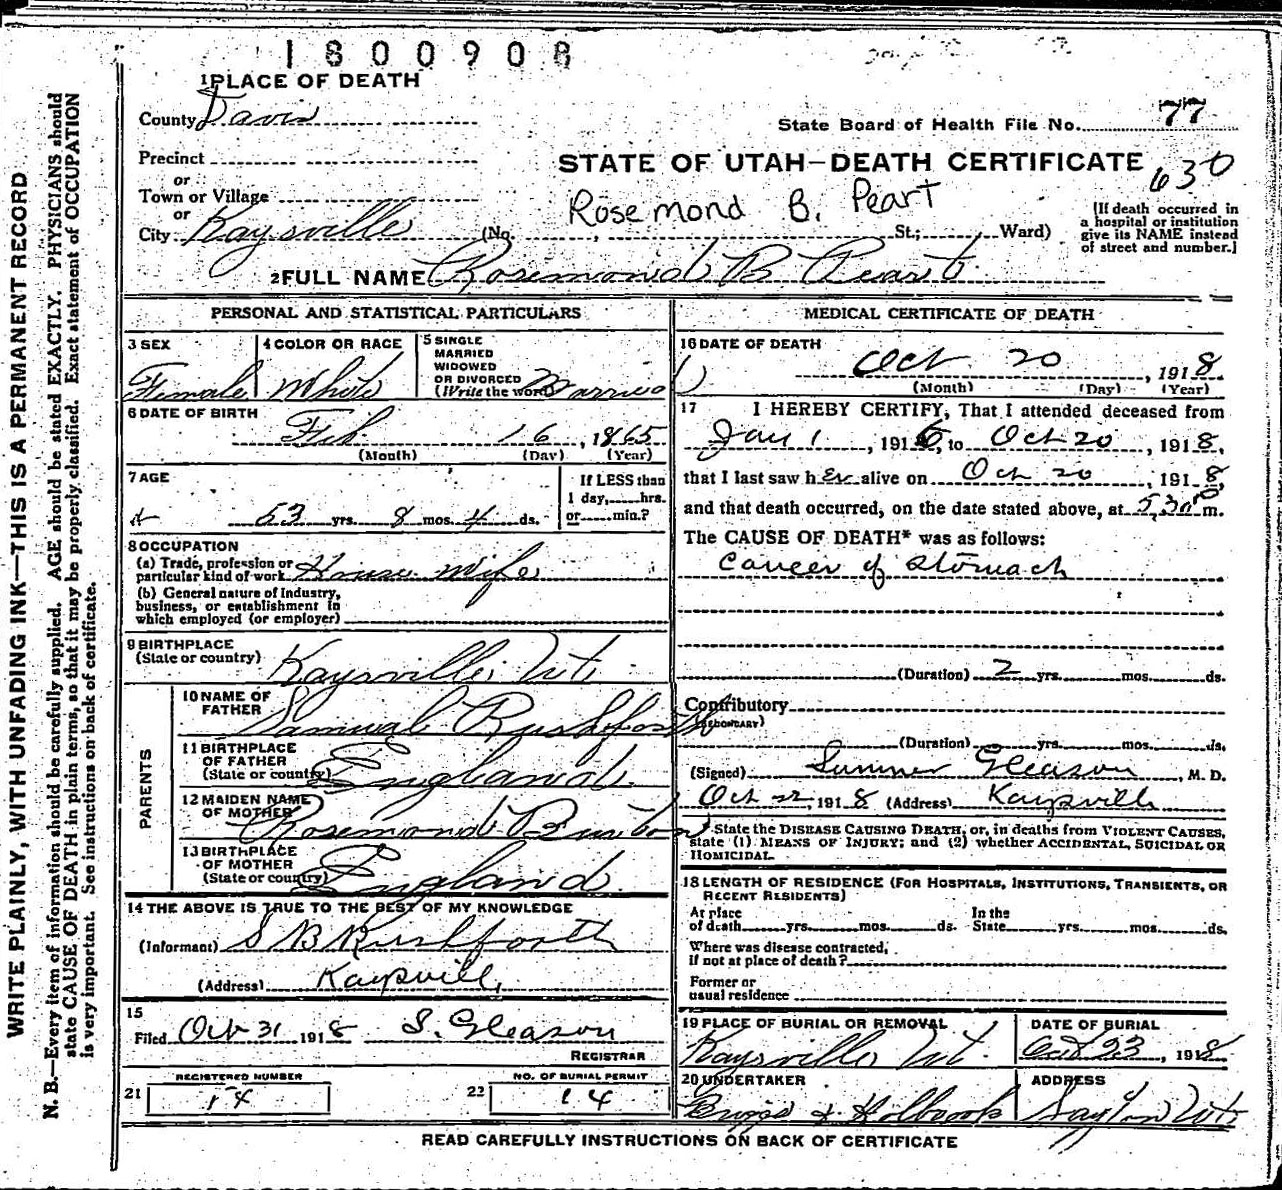 1800908
1 PLACE OF DEATH
County Davis
State Board of Health File No. 77
Precinct
STATE OF UTAH—DEATH CERTIFICATE
630
or
Town or Village
or
Rosemond B. Peart
City Kaysville (No. , St.; Ward)
(If death occurred in
a hospital or institution
give its NAME instead
of street and number.]
2 FULL NAME Rosemond B Peart
PERSONAL AND STATISTICAL PARTICULARS
3 SEX
Female
4 COLOR OR RACE
White
5 SINGLE
MARRIED
WIDOWED
OR DIVORCED
(Write the word) Married
6 DATE OF BIRTH
Feb 16, 1865
(Month) (Day) (Year)
7 AGE
53 yrs. 8 mos. 4 ds.
If LESS than
1 day, hrs.
or min.?
8 OCCUPATION
(a) Trade, profession or
particular kind of work House Wife
(b) General nature of Industry,
business, or establishment in
which employed (or employer)
9 BIRTHPLACE
(State or country) Kaysville, Ut.
PARENTS
10 NAME OF
FATHER Samuel Rushforth
11 BIRTHPLACE
OF FATHER
(State or country) England
12 MAIDEN NAME
OF MOTHER Rosemond Buxton
13 BIRTHPLACE
OF MOTHER
(State or country) England
14 THE ABOVE IS TRUE TO THE BEST OF MY KNOWLEDGE
(Informant) S B Rushforth
(Address) Kaysville,
15
Filed Oct 31 1918 S. Gleason
REGISTRAR
REGISTERED NUMBER
21 14
NO. OF BURIAL PERMIT
22 14
MEDICAL CERTIFICATE OF DEATH
16 DATE OF DEATH
Oct 20, 1918
(Month) (Day) (Year)
17 I HEREBY CERTIFY, That I attended deceased from
Jan 1, 1916, to Oct 20, 1918,
that I last saw her alive on Oct 20, 1918,
and that death occurred, on the date stated above, at 5,30 P m.
The CAUSE OF DEATH* was as follows:
Cancer of Stomach
(Duration) 2 yrs. mos. ds.
Contributory
(SECONDARY)
(Duration) yrs. mos. ds.
(Signed) Sumner Gleason, M. D.
Oct 22, 1918 (Address) Kaysville
State the DISEASE CAUSING DEATH, or, in deaths from VIOLENT CAUSES,
state (1) MEANS OF INJURY; and (2) whether ACCIDENTAL, SUICIDAL OR
HOMICIDAL.
18 LENGTH OF RESIDENCE (FOR HOSPITALS, INSTITUTIONS, TRANSIENTS, OR
RECENT RESIDENTS)
At place In the
of death yrs. mos. ds. State yrs. mos. ds.
Where was disease contracted,
If not at place of death?
Former or
usual residence
19 PLACE OF BURIAL OR REMOVAL
Kaysville, Ut.
DATE OF BURIAL
Oct 23, 1918
20 UNDERTAKER
Briggs & Holbrook
ADDRESS
Layton Ut.
READ CAREFULLY INSTRUCTIONS ON BACK OF CERTIFICATE
WRITE PLAINLY, WITH UNFADING INK—THIS IS A PERMANENT RECORD
N. B.—Every item of information should be carefully supplied. AGE should be stated EXACTLY. PHYSICIANS should
state CAUSE OF DEATH in plain terms, so that it may be properly classified. Exact statement of OCCUPATION
is very important. See instructions on back of certificate.